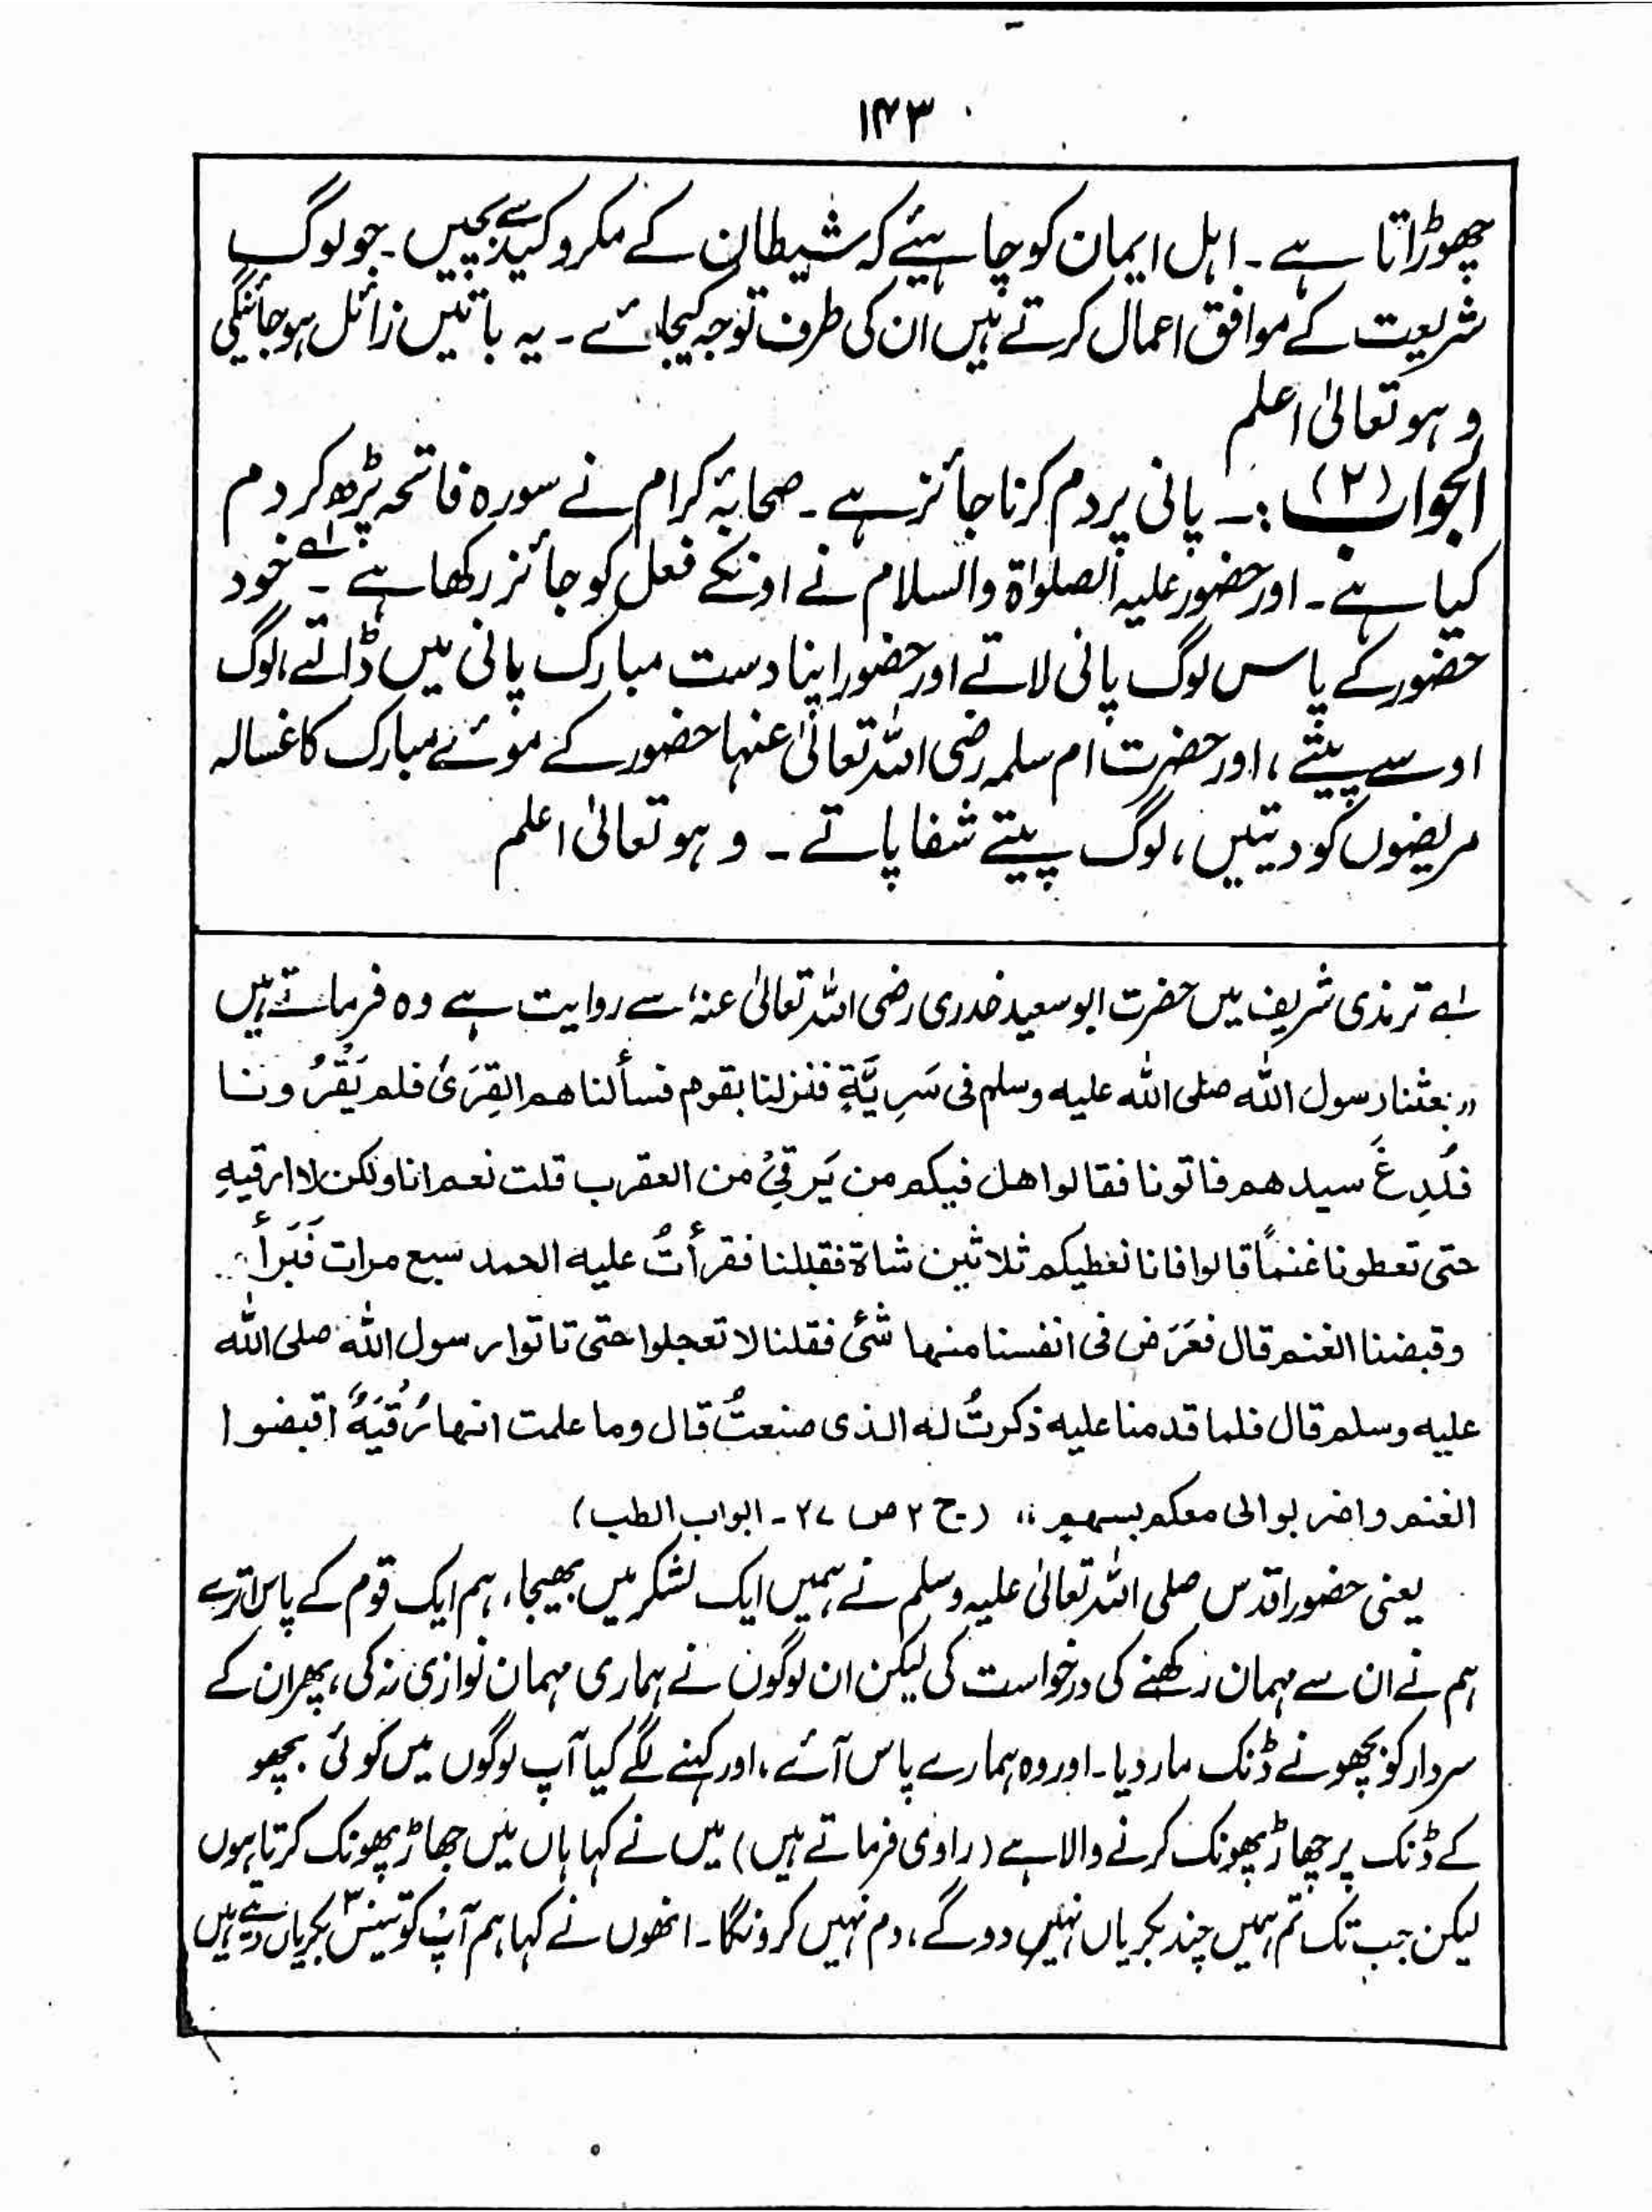 ۱۴۳
چھوڑاتا ہے ۔ اہل ایمان کو چاہیئے کہ شیطان کے مکر و کید سے بچیں ۔ جو لوگ
شریعت کے موافق اعمال کرتے ہیں ان کی طرف توجہ کیجائے ۔ یہ باتیں زائل ہو جائنگی
و ہو تعالیٰ اعلم
الجواب (۲) :۔ پانی پر دم کرنا جائز ہے ۔ صحابۂ کرام نے سورہ فاتحہ پڑھ کر دم
کیا ہے ۔ اور حضور علیہ الصلوٰۃ والسلام نے اونکے فعل کو جائز رکھا ہے ۔ لہ خود
حضور کے پاس لوگ پانی لاتے اور حضور اپنا دست مبارک پانی میں ڈالتے ، لوگ
اوسے پیتے ، اور حضرت ام سلمہ رضی اللہ تعالیٰ عنہا حضور کے موئے مبارک کا غسالہ
مریضوں کو دیتیں ، لوگ پیتے شفا پاتے ۔ و ہو تعالیٰ اعلم
لہ ترمذی شریف میں حضرت ابو سعید خدری رضی اللہ تعالیٰ عنہ سے روایت ہے وہ فرماتے ہیں
„ بعثنا رسول اللہ صلی اللہ علیہ وسلم فی سَرِیَّةٍ فنزلنا بقوم فسألناهم القِرَیٰ فلم یَقْرُونا
فَلُدِغَ سیدهم فاتونا فقالوا هل فیکم من یَرقِیْ من العقرب قلت نعم انا ولکن لا ارقیهِ
حتی تعطونا غنمًا قالوا فانا نعطیکم ثلاثین شاة فقبلنا فقرأتُ علیه الحمد سبع مرات فَبَرَأَ
وقبضنا الغنم قال فعَرَض فی انفسنا منها شئ فقلنا لا تعجلوا حتی تاتوا رسول اللہ صلی اللہ
علیه وسلم قال فلما قدمنا علیه ذکرتُ له الذی صنعتُ قال وما علمت انها رُقیَةٌ اقبضوا
الغنم واضربوا لی معکم بسهم ،، (ج ۲ ص ۲۷ ۔ ابواب الطب)
یعنی حضور اقدس صلی اللہ تعالیٰ علیہ وسلم نے ہمیں ایک لشکر میں بھیجا ، ہم ایک قوم کے پاس اترے
ہم نے ان سے مہمان رکھنے کی درخواست کی لیکن ان لوگوں نے ہماری مہمان نوازی نہ کی ، پھر ان کے
سردار کو بچھو نے ڈنک مار دیا ۔ اور وہ ہمارے پاس آئے ، اور کہنے لگے کیا آپ لوگوں میں کوئی بچھو
کے ڈنک پر جھاڑ پھونک کرنے والا ہے (راوی فرماتے ہیں) میں نے کہا ہاں میں جھاڑ پھونک کرتا ہوں
لیکن جب تک تم ہمیں چند بکریاں نہیں دو گے ، دم نہیں کرونگا ۔ انھوں نے کہا ہم آپ کو تیس بکریاں دیتے ہیں